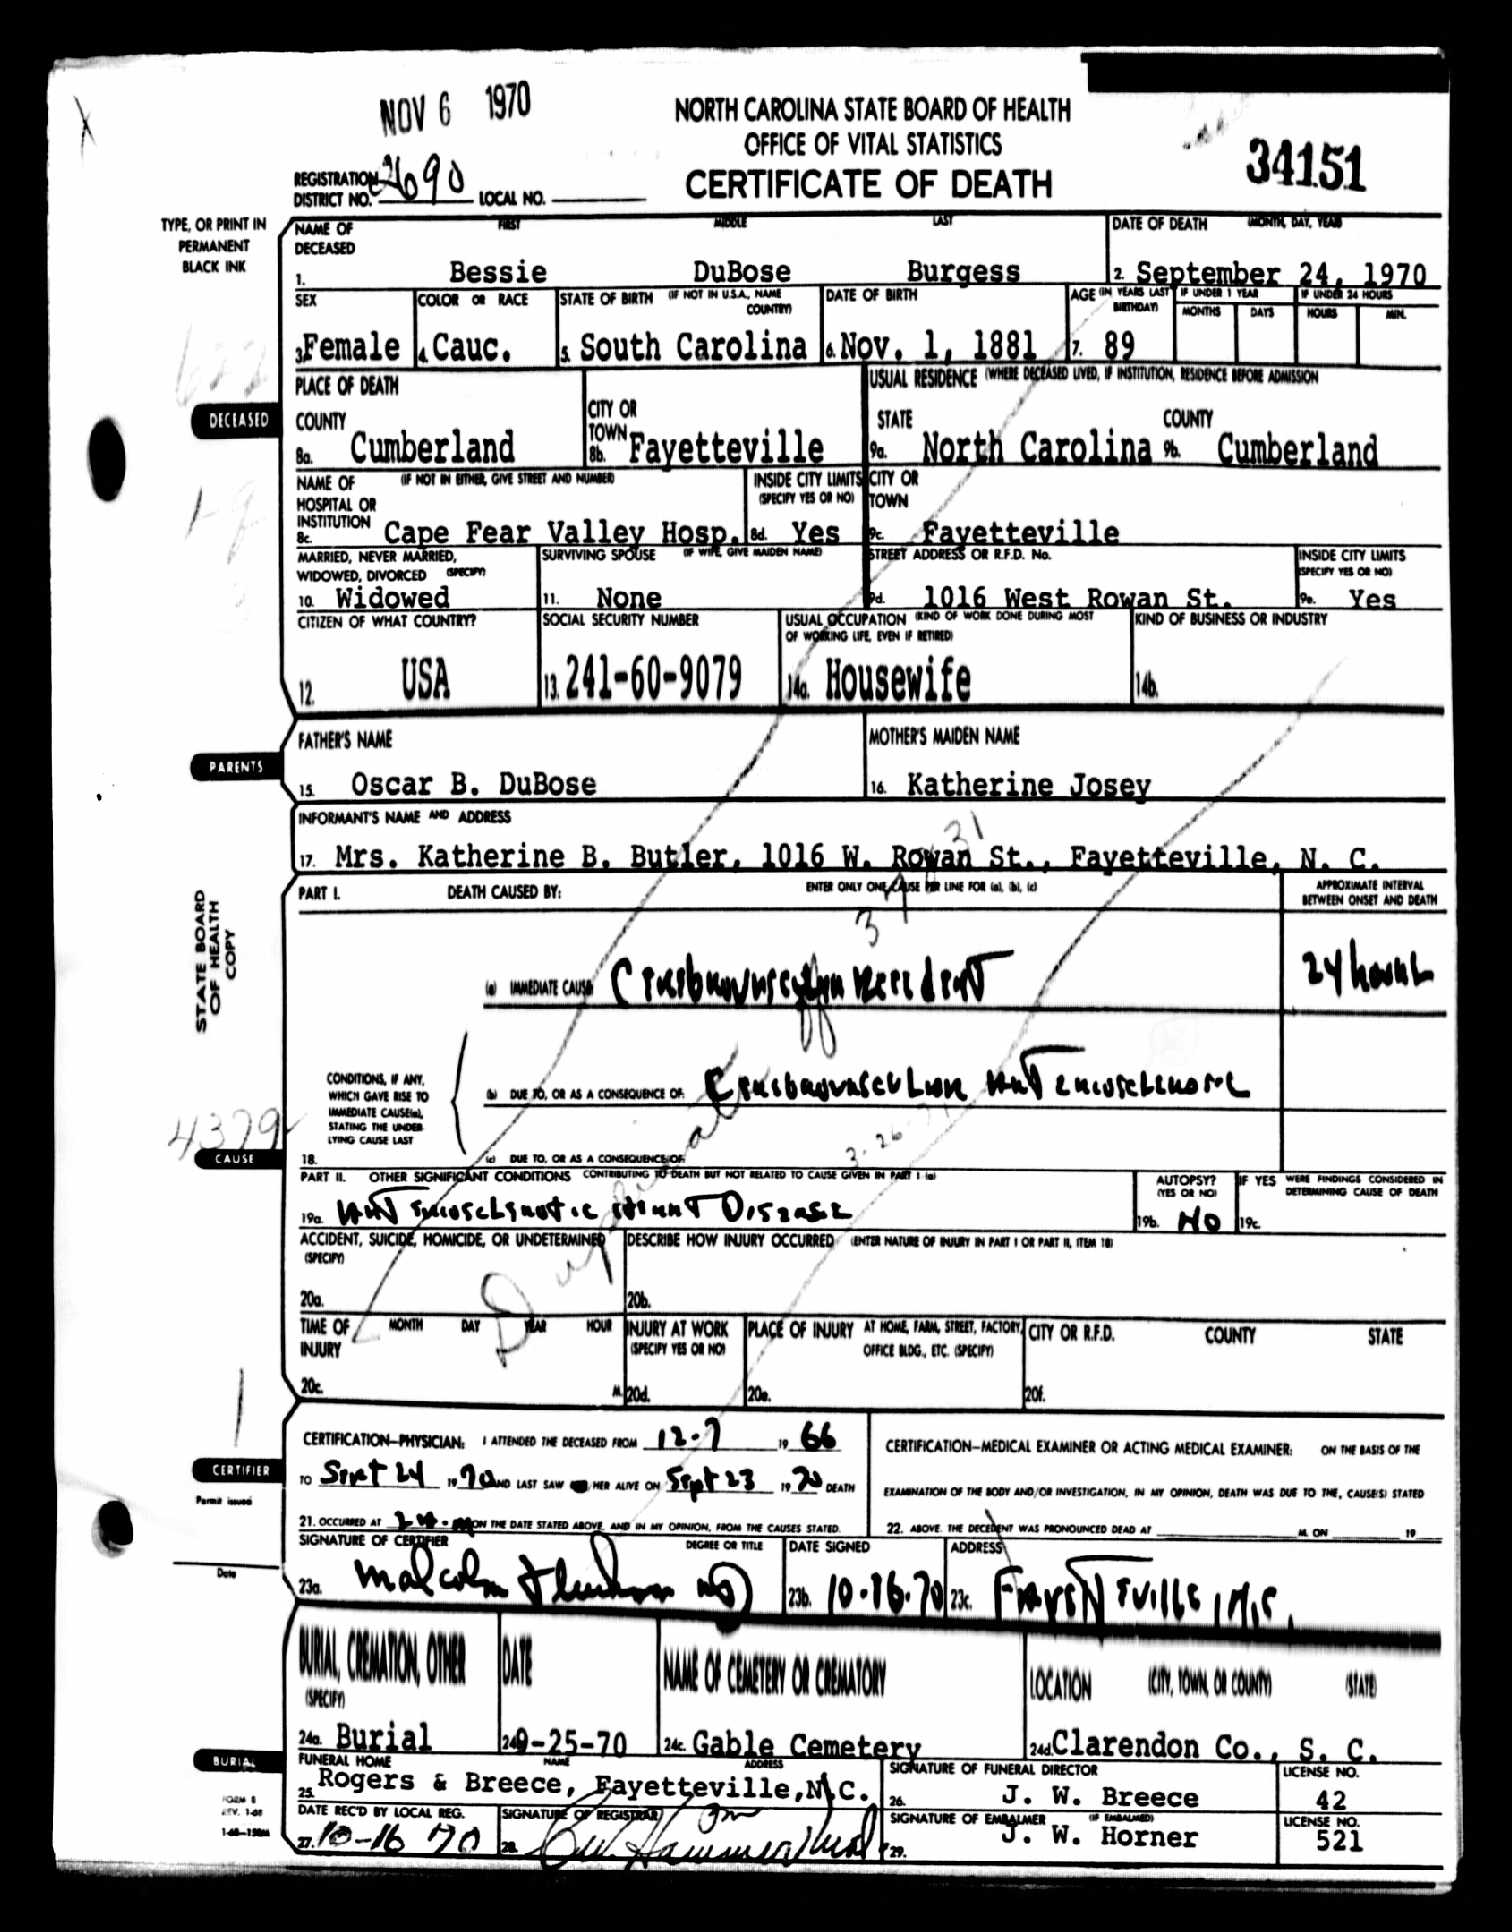 NOV 6 1970
NORTH CAROLINA STATE BOARD OF HEALTH
OFFICE OF VITAL STATISTICS
CERTIFICATE OF DEATH
34151
REGISTRATION DISTRICT NO. 2690 LOCAL NO.
TYPE, OR PRINT IN
PERMANENT
BLACK INK
NAME OF DECEASED FIRST MIDDLE LAST DATE OF DEATH (MONTH, DAY, YEAR)
1. Bessie DuBose Burgess 2. September 24, 1970
SEX COLOR OR RACE STATE OF BIRTH (IF NOT IN U.S.A., NAME COUNTRY) DATE OF BIRTH AGE (IN YEARS LAST BIRTHDAY) IF UNDER 1 YEAR IF UNDER 24 HOURS
MONTHS DAYS HOURS MIN.
3. Female 4. Cauc. 5. South Carolina 6. Nov. 1, 1881 7. 89
DECEASED
PLACE OF DEATH USUAL RESIDENCE (WHERE DECEASED LIVED, IF INSTITUTION, RESIDENCE BEFORE ADMISSION
COUNTY CITY OR TOWN STATE COUNTY
8a. Cumberland 8b. Fayetteville 9a. North Carolina 9b. Cumberland
NAME OF HOSPITAL OR INSTITUTION (IF NOT IN EITHER, GIVE STREET AND NUMBER) INSIDE CITY LIMITS (SPECIFY YES OR NO) CITY OR TOWN
8c. Cape Fear Valley Hosp. 8d. Yes 9c. Fayetteville
MARRIED, NEVER MARRIED, WIDOWED, DIVORCED (SPECIFY) SURVIVING SPOUSE (IF WIFE, GIVE MAIDEN NAME) STREET ADDRESS OR R.F.D. No. INSIDE CITY LIMITS (SPECIFY YES OR NO)
10. Widowed 11. None 9d. 1016 West Rowan St. 9e. Yes
CITIZEN OF WHAT COUNTRY? SOCIAL SECURITY NUMBER USUAL OCCUPATION (KIND OF WORK DONE DURING MOST OF WORKING LIFE, EVEN IF RETIRED) KIND OF BUSINESS OR INDUSTRY
12. USA 13. 241-60-9079 14a. Housewife 14b.
PARENTS
FATHER'S NAME MOTHER'S MAIDEN NAME
15. Oscar B. DuBose 16. Katherine Josey
INFORMANT'S NAME AND ADDRESS
17. Mrs. Katherine B. Butler, 1016 W. Rowan St., Fayetteville, N. C.
STATE BOARD
OF HEALTH
COPY
PART I. DEATH CAUSED BY: ENTER ONLY ONE CAUSE PER LINE FOR (a), (b), (c) APPROXIMATE INTERVAL BETWEEN ONSET AND DEATH
(a) IMMEDIATE CAUSE Cerebrovascular accident 24 hours
CONDITIONS, IF ANY,
WHICH GAVE RISE TO
IMMEDIATE CAUSE(a),
STATING THE UNDER
LYING CAUSE LAST
(b) DUE TO, OR AS A CONSEQUENCE OF: Cerebrovascular arteriosclerosis
4379
CAUSE
3-26-71
Duplicate
18. (c) DUE TO, OR AS A CONSEQUENCE OF:
PART II. OTHER SIGNIFICANT CONDITIONS CONTRIBUTING TO DEATH BUT NOT RELATED TO CAUSE GIVEN IN PART I (a) AUTOPSY? (YES OR NO) IF YES WERE FINDINGS CONSIDERED IN DETERMINING CAUSE OF DEATH
19a. Arteriosclerotic Heart Disease 19b. No 19c.
ACCIDENT, SUICIDE, HOMICIDE, OR UNDETERMINED (SPECIFY) DESCRIBE HOW INJURY OCCURRED (ENTER NATURE OF INJURY IN PART I OR PART II, ITEM 18)
20a. 20b.
TIME OF INJURY MONTH DAY YEAR HOUR INJURY AT WORK (SPECIFY YES OR NO) PLACE OF INJURY AT HOME, FARM, STREET, FACTORY, OFFICE BLDG., ETC. (SPECIFY) CITY OR R.F.D. COUNTY STATE
20c. M. 20d. 20e. 20f.
CERTIFIER
Permit issued
Date
CERTIFICATION—PHYSICIAN: I ATTENDED THE DECEASED FROM 12-7 19 66
TO Sept 24 19 70 AND LAST SAW HER ALIVE ON Sept 23 19 70 DEATH
21. OCCURRED AT ON THE DATE STATED ABOVE, AND IN MY OPINION, FROM THE CAUSES STATED.
CERTIFICATION—MEDICAL EXAMINER OR ACTING MEDICAL EXAMINER: ON THE BASIS OF THE
EXAMINATION OF THE BODY AND/OR INVESTIGATION, IN MY OPINION, DEATH WAS DUE TO THE, CAUSE(S) STATED
22. ABOVE. THE DECEDENT WAS PRONOUNCED DEAD AT M. ON 19
SIGNATURE OF CERTIFIER DEGREE OR TITLE DATE SIGNED ADDRESS
23a. Malcolm MD 23b. 10-16-70 23c. Fayetteville, N.C.
BURIAL
BURIAL, CREMATION, OTHER (SPECIFY) DATE NAME OF CEMETERY OR CREMATORY LOCATION (CITY, TOWN, OR COUNTY) (STATE)
24a. Burial 24b. 9-25-70 24c. Gable Cemetery 24d. Clarendon Co., S. C.
FUNERAL HOME NAME ADDRESS SIGNATURE OF FUNERAL DIRECTOR LICENSE NO.
25. Rogers & Breece, Fayetteville, N.C. 26. J. W. Breece 42
DATE REC'D BY LOCAL REG. SIGNATURE OF REGISTRAR SIGNATURE OF EMBALMER (IF EMBALMED) LICENSE NO.
27. 10-16 70 28. 29. J. W. Horner 521
FORM 8
REV. 1-68